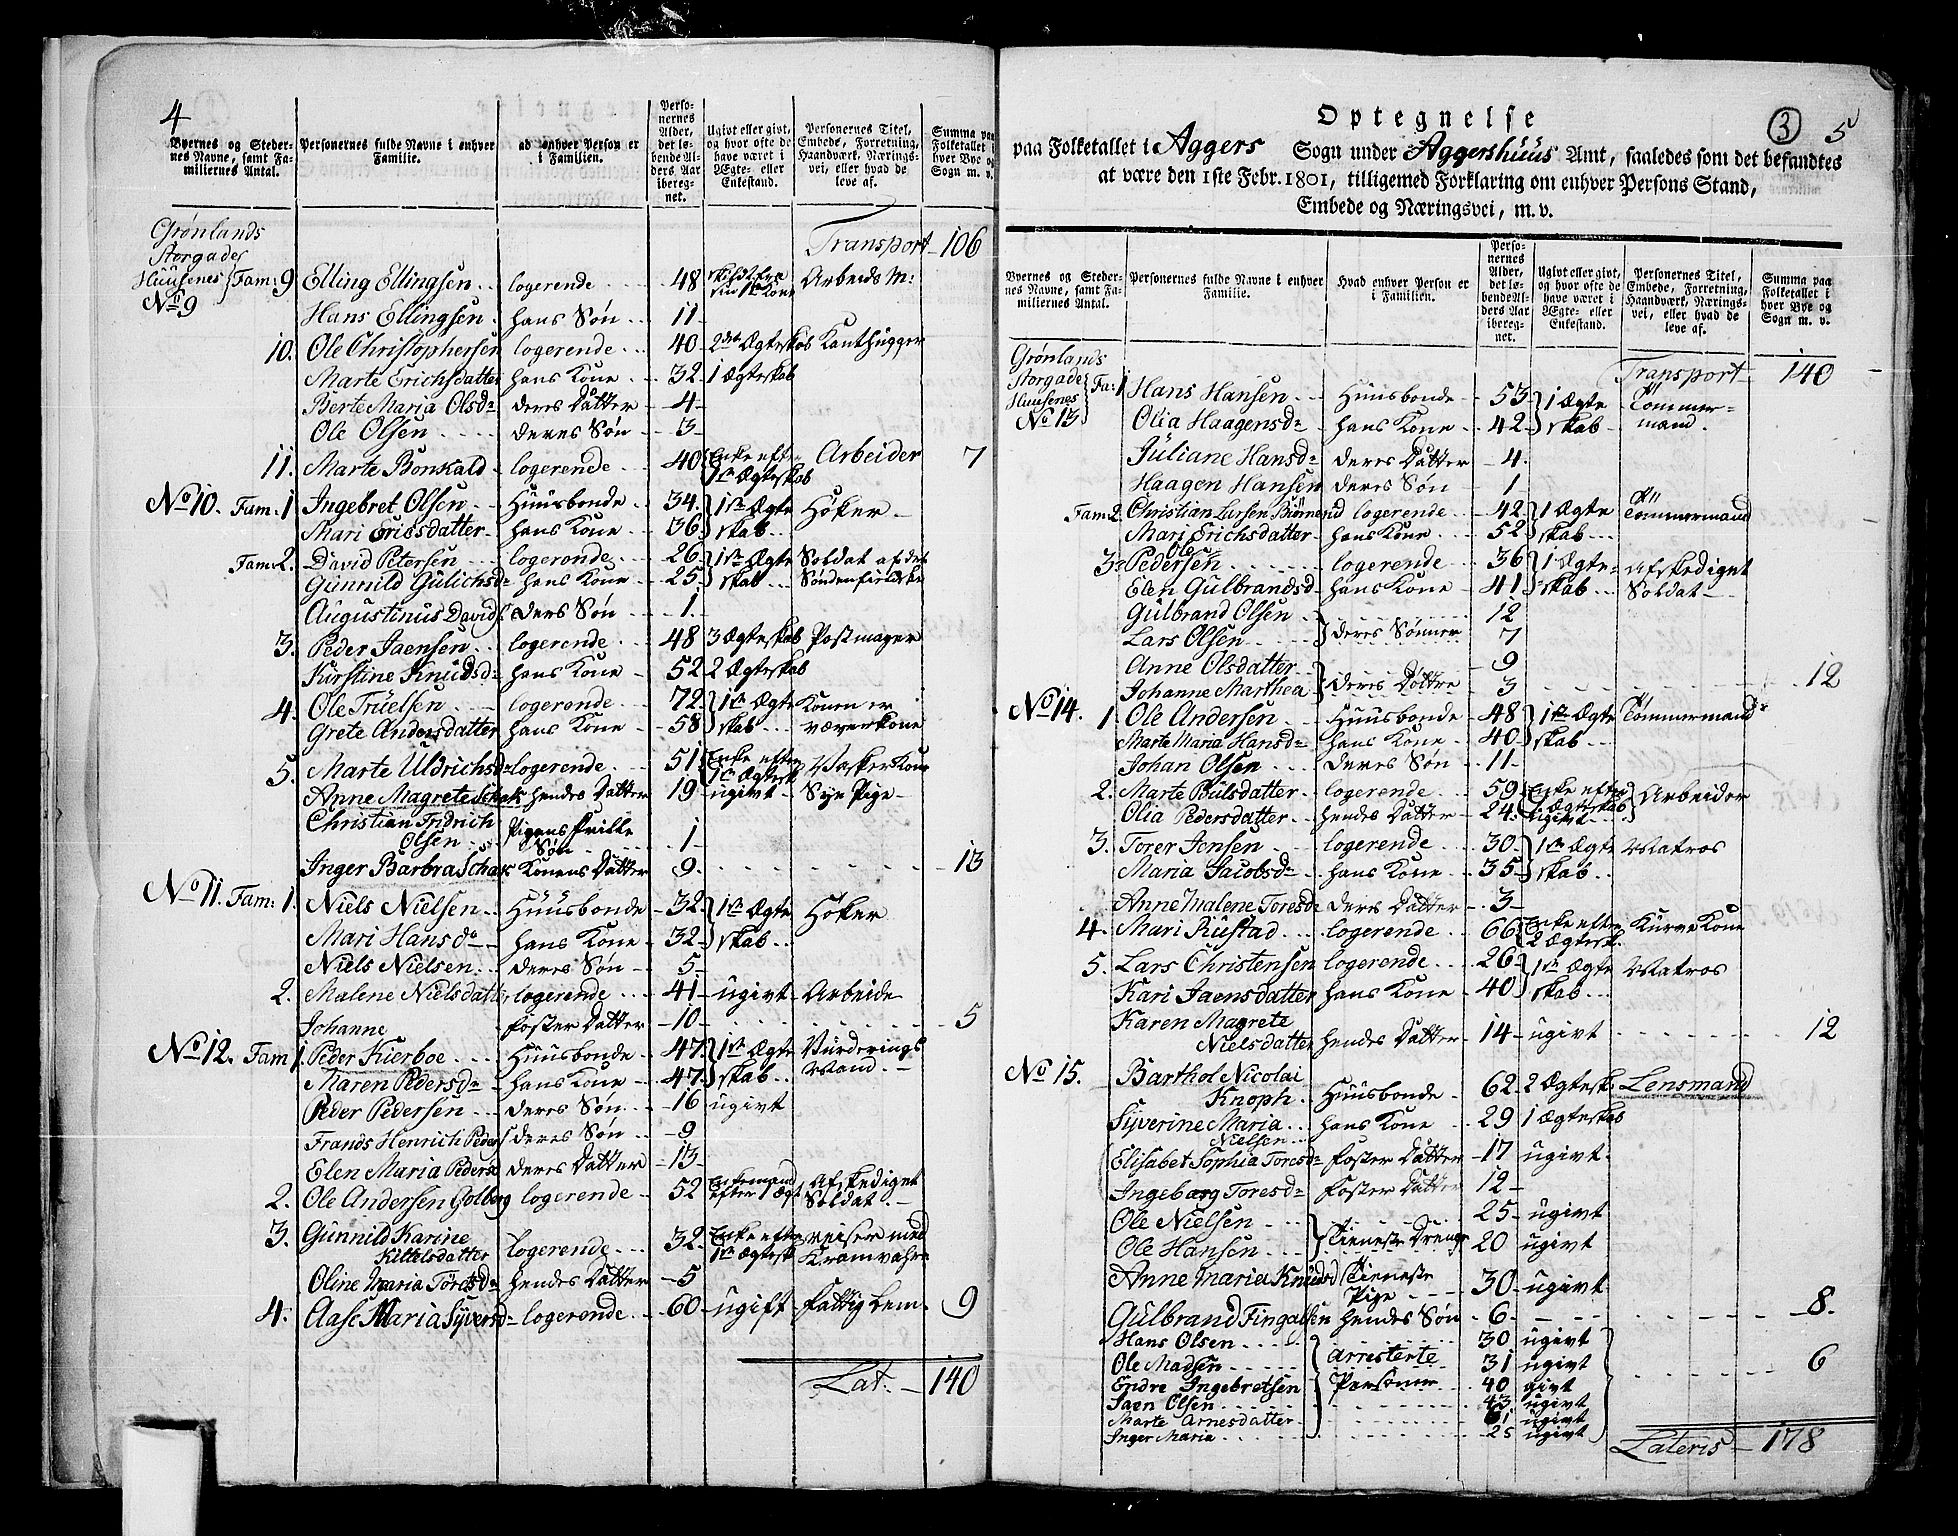 4
Byernes og Stedernes Navne, samt Familiernes Antal.
Personernes fulde Navne i enhver Familie.
ad enhver Person er i Familien.
Personernes Alder, det løbende Alders Aar iberegnet.
Ugivt eller givt, og hvor ofte de have været i Ægte- eller Enkestand.
Personernes Titel, Embede, Forretning, Haandværk, Næringsvei, eller hvad de leve af.
Summa paa Folketallet i hver Bye og Sogn m. v.
Grønlands
Storgades
Huusenes
No 9
Transport 106
Fam: 9 Elling Ellingsen logerende 48 skildt fra sin 1te Kone Arbeids M:
Hans Ellingsen hans Søn 11
10. Ole Christophersen logerende 40 2det Ægteskab Kanthugger
Marte Erichsdatter hans Kone 32 1 Ægteskab
Berte Maria Olsd: deres Datter 4
Ole Olsen deres Søn 3
11. Marte Bonkald logerende 40 Enke eft: 1te Ægteskab Arbeider 7
No 10. Fam: 1 Ingebret Olsen Huusbonde 34 1ste Ægte Høker
Mari Ericsdatter hans Kone 36 skab
Fam: 2. David Petersen logerende 26 1ste Ægte Soldat af det
Gunnild Gulichsd: hans Kone 25 skab Søndenfieldske
Augustinus Davids. deres Søn 1
3. Peder Jaensen logerende 48 3 Ægteskab Postmager
Kirstine Knudsd: hans Kone 52 2 Ægteskab
4. Ole Truelsen logerende 72 1te Ægte Konen er
Grete Andersdatter hans Kone 58 skab væverkone
5. Marte Uldrichsd: logerende 51 Enke efter 1te Ægtesk Vasker Kone
Anne Magrete Schak hendes Datter 19 ugivt Sye Pige
Christian Fridrich
Olsen Pigens frille Søn 1
Inger Barbra Schak Konens Datter 9 13
No 11. Fam: 1. Niels Nielsen Huusbonde 32 1te Ægte Høker
Mari Hansd: hans Kone 32 skab
Niels Nielsen deres Søn 5
2. Malene Nielsdatt: logerende 41 ugivt Arbeide
Johanne foster Datter 10 5
No 12. Fam 1. Peder Kierboe Huusbonde 47 1ste Ægte Vurderings
Maren Pedersd: hans Kone 47 skab Mand
Peder Pedersen deres Søn 16 ugivt
Frands Henrich Peders deres Søn 9
Elen Maria Pedersd deres Datter 13
2. Ole Andersen Golberg logerende 52 Enkemand efter 1 Ægt Afskediget Soldat
3. Gunnild Karine
Kittelsdatter logerende 32 Enke efter 1te Ægtesk reiser med Kramvahre
Oline Maria Toresd: hendes Datter 5
4. Aase Maria Syversd: logerende 60 ugift fattig Lem 9
Lat: 140
Optegnelse
3 5
paa Folketallet i Aggers Sogn under Aggershuus Amt, saaledes som det befandtes
at være den 1ste Febr. 1801, tilligemed Forklaring om enhver Persons Stand,
Embede og Næringsvei, m. v.
Byernes og Stedernes Navne, samt Familiernes Antal.
Personernes fulde Navne i enhver Familie.
Hvad enhver Person er i Familien.
Personernes Alder, det løbende Alders Aar iberegnet.
Ugivt eller givt, og hvor ofte de have været i Ægte- eller Enkestand.
Personernes Titel, Embede, Forretning, Haandværk, Næringsvei, eller hvad de leve af.
Summa paa Folketallet i hver Bye og Sogn m. v.
Grønlands
Storgade
Huusenes
No 13
Transport 140
Fa: 1 Hans Hansen Huusbonde 53 1 Ægte Tømmer=
Olia Haagensd: hans Kone 42 skab mand.
Juliane Hansd: deres Datter 4
Haagen Hansen deres Søn 1
Fam: 2. Christian Larsen logerende 42 1 Ægte Tømmermand
Mari Erichsdatter hans Kone 52 skab
3: Ole Pedersen logerende 36 1 Ægte= afskediget
Elen Gulbrandsd hans Kone 41 skab Soldat
Gulbrand Olsen 12
Lars Olsen deres Sønner 7
Anne Olsdatter 9
Johanne Marthea deres Døttre 3 12
No 14. 1. Ole Andersen Huusbonde 48 1ste Ægte Tømmermand
Marte Maria Hansd: hans Kone 40 skab
Johan Olsen deres Søn 11
2. Marte Pulsdatter logerende 59 Enke efter 1 Ægteskab Arbeider
Olia Pedersdatter hendes Datter 24 ugivt
3. Torer Jensen logerende 30 1te Ægte Matros
Maria Jacobsd: hans Kone 35 skab
Anne Malene Toresd: deres Datter 3
4. Mari Rustad logerende 66 Enke efter 2 Ægtesk. Kurve Kone
5. Lars Christensen logerende 26 1te Ægte Matros
Kari Jaensdatter hans Kone 40 skab
Karen Magrete
Nielsdatter hendes Datter 14 ugivt 12
No 15. Barthol Nicolai
Knoph Huusbonde 62 2 Ægtesk. Lensmand
Syverine Maria hans Kone 29 1 Ægteskab
Nielsen
Elisabet Sophia Toresd: foster Datter 17 ugivt
Ingeborg Toresd: foster Datter 12
Ole Nielsen 25 ugivt
Ole Hansen Tieneste Drenge 20 ugivt
Anne Maria Knudsd Tieneste Pige 30 ugivt
Gulbrand Fingalsen hendes Søn 6 8
Hans Olsen 30 ugivt
Ole Madsen Arresterte 31 ugivt 6
Endre Ingebretsen Personer 40 givt
Jaen Olsen 43 ugivt
Marte Arnesdatter 61 ugivt
Inger Maria 25 ugivt
Lateris 178